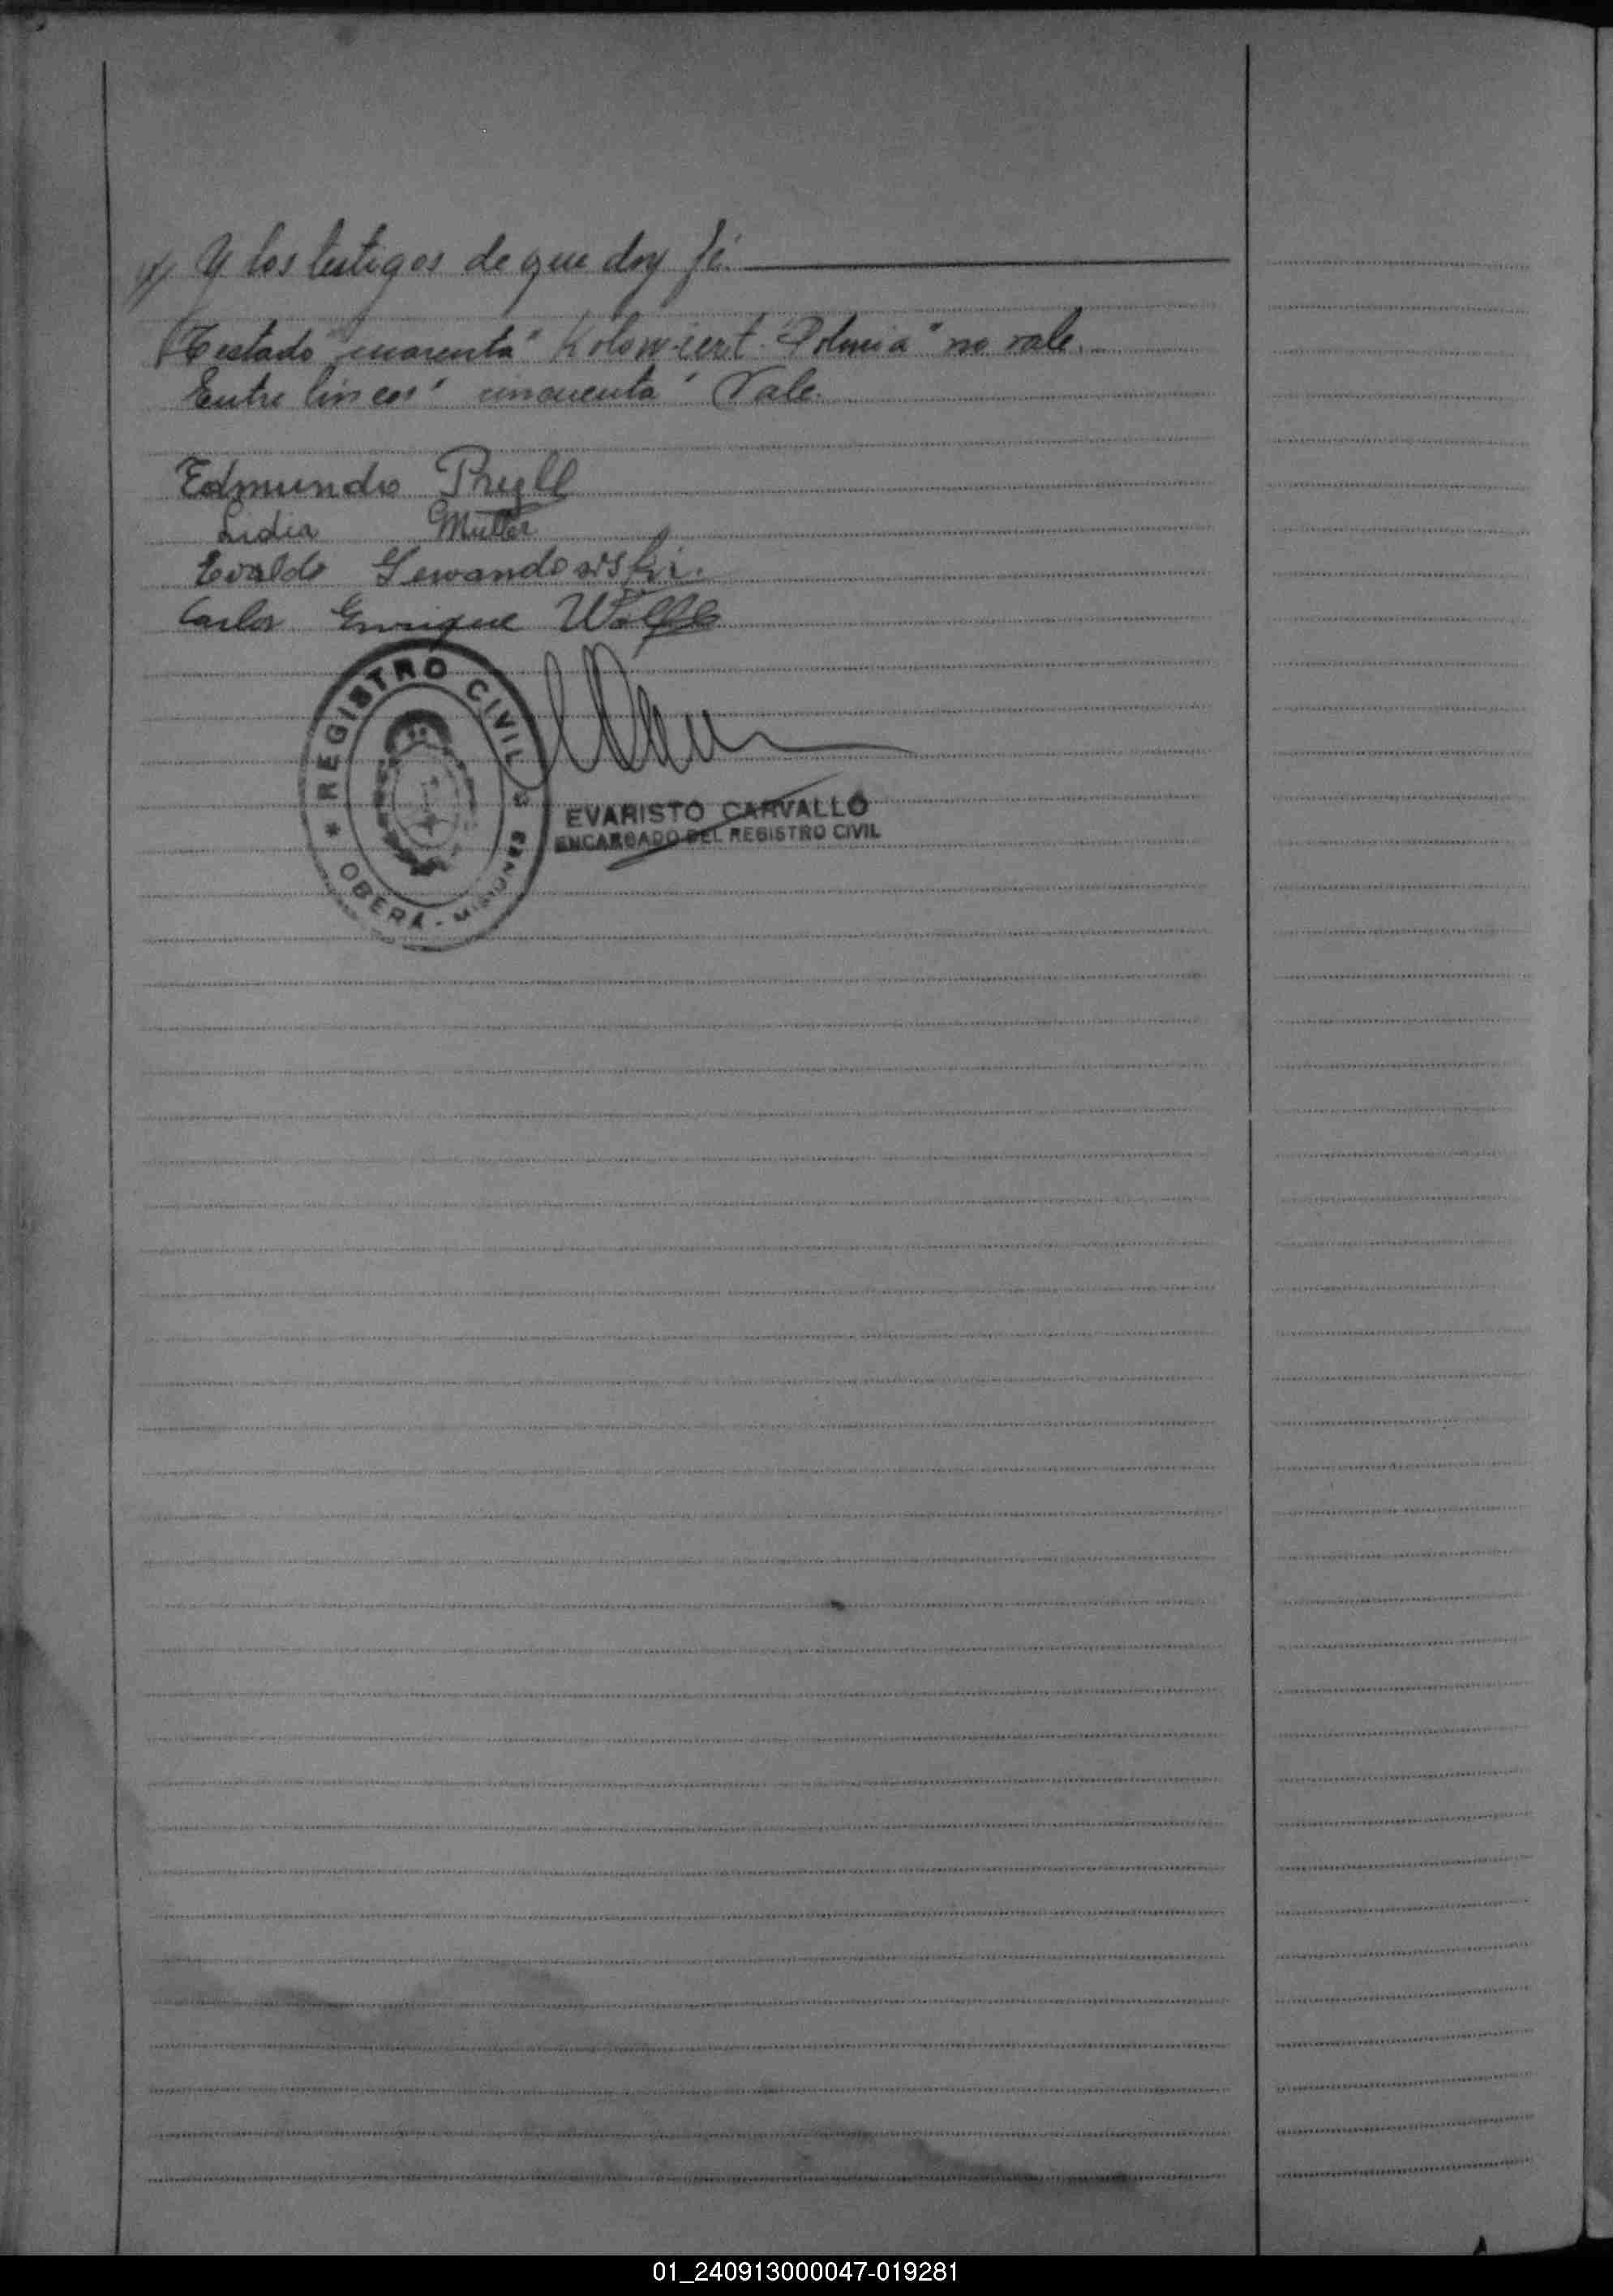 Y los testigos de que doy fé.
Testado "cuarenta" Kolowiert - Polonia" no vale.
Entre lineas "cincuenta" Vale.
Edmundo
Lidia Müller
Evaldo Lewandowski.
Carlos Enrique Wolff
REGISTRO CIVIL
* OBERÁ - MISIONES
EVARISTO CARVALLO
ENCARGADO DEL REGISTRO CIVIL
01_240913000047-019281